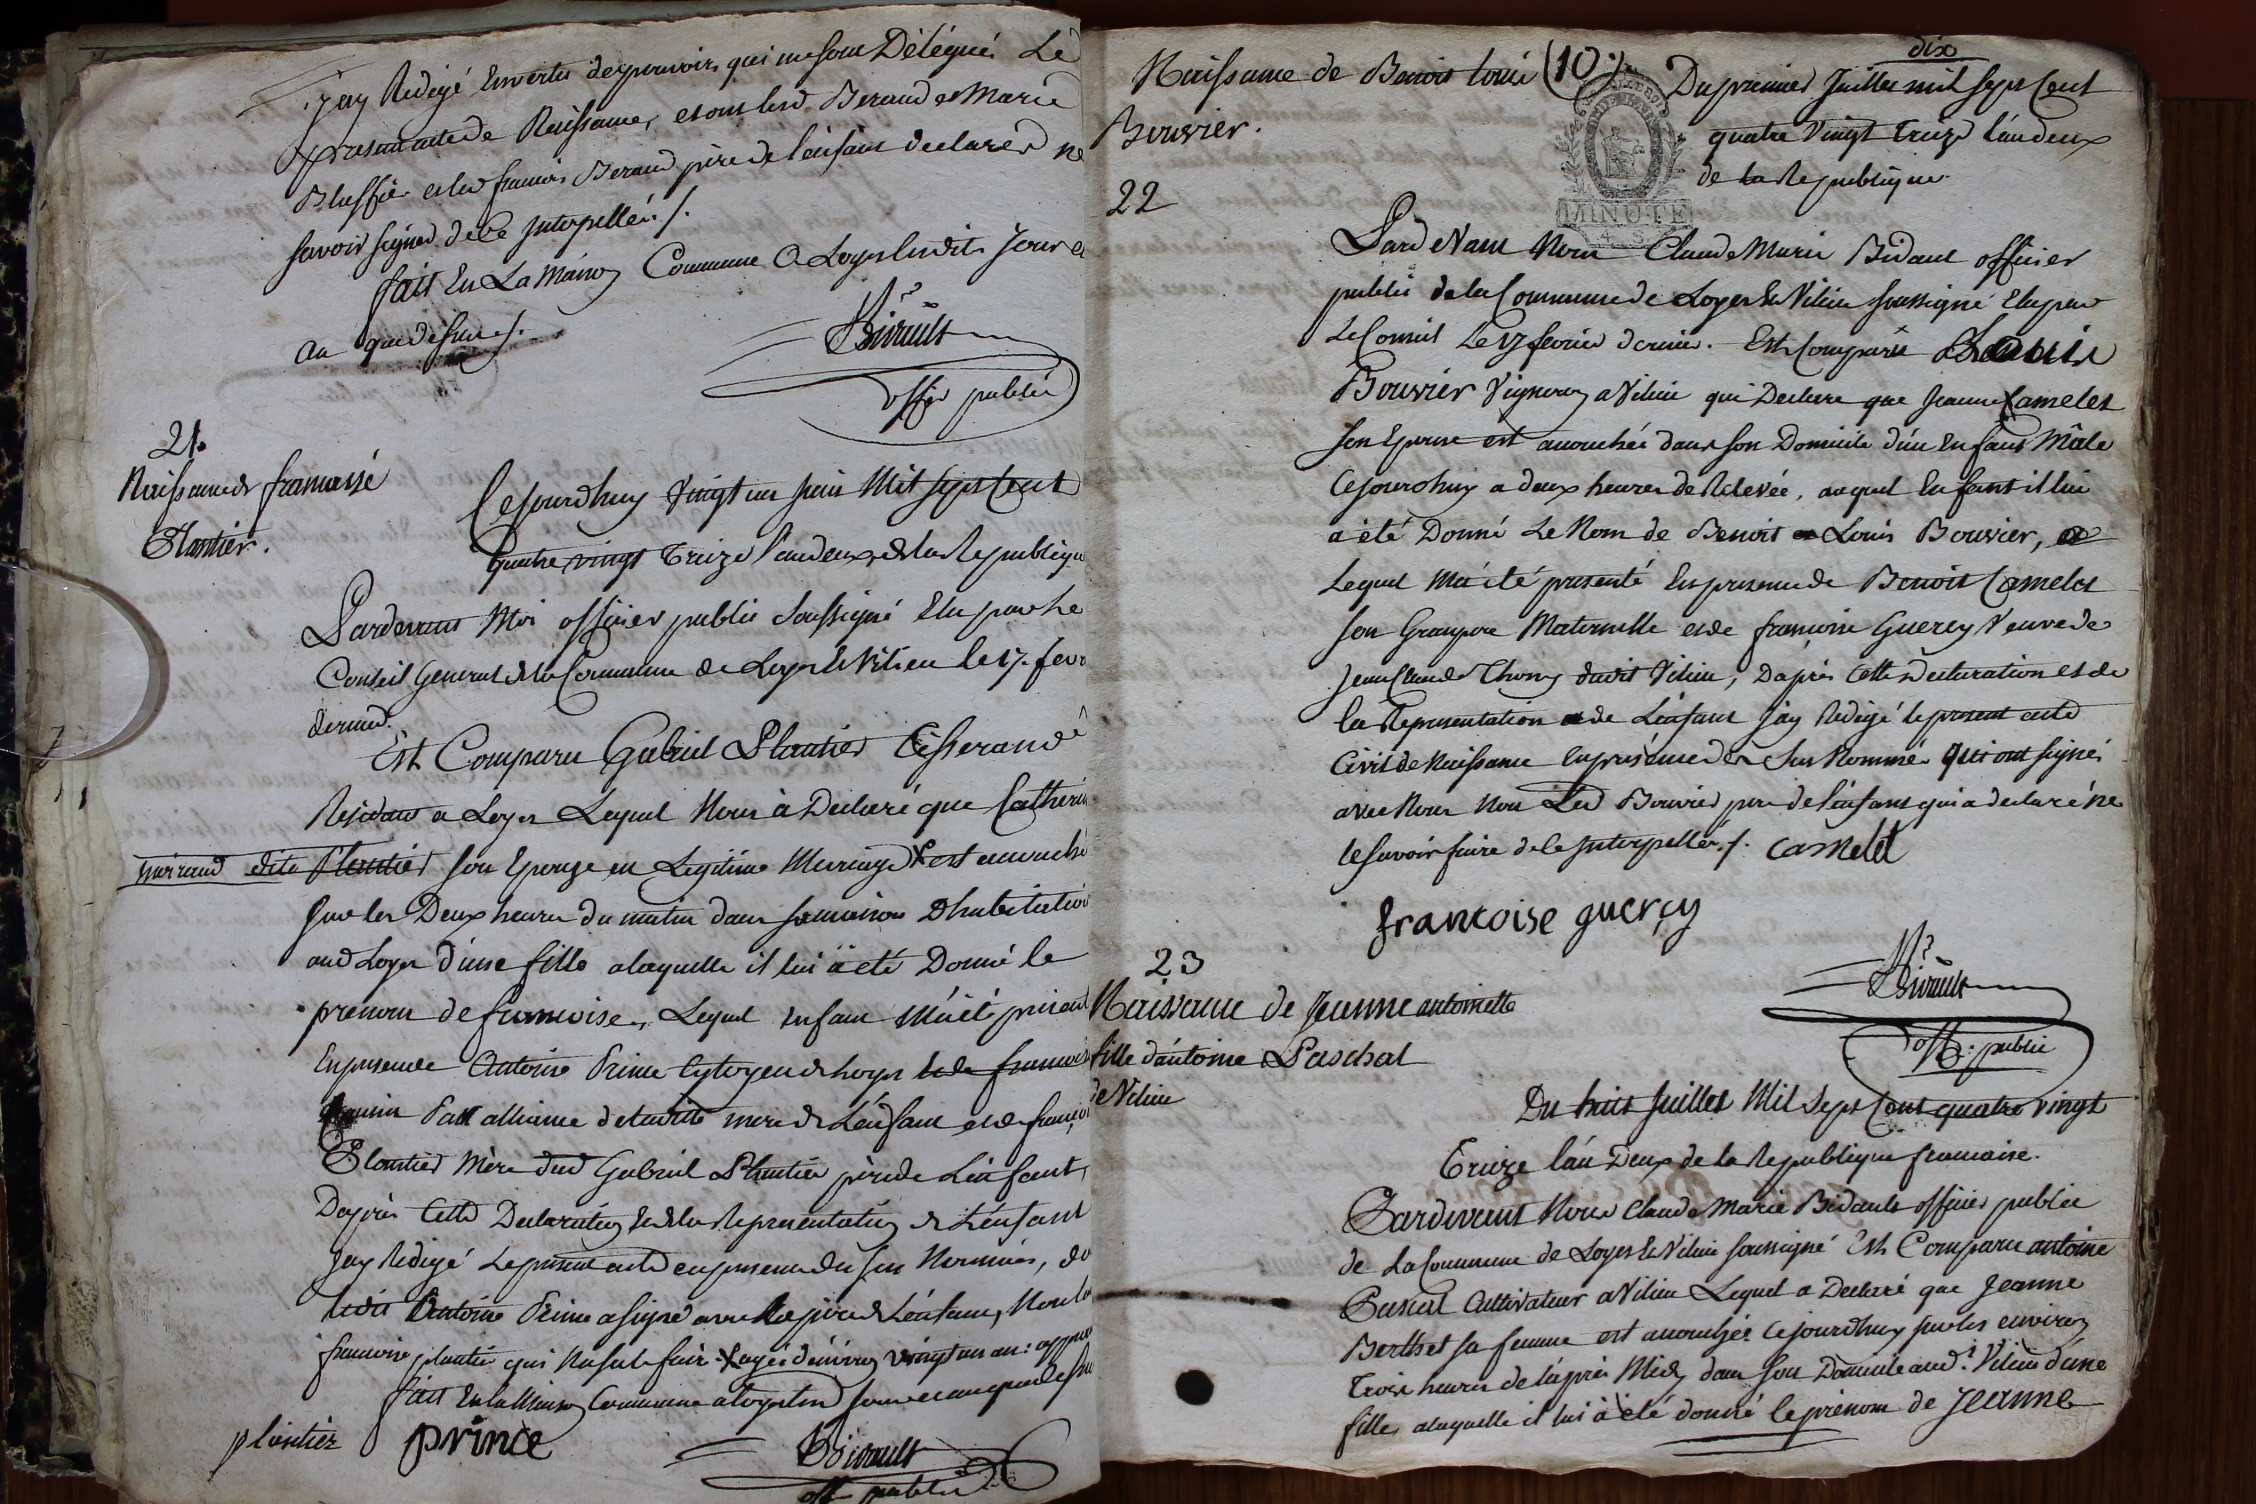 j'ay Redigé Envertu despouvoirs qui mesont Délégués Le
present acte de Naissance, et ont lesd Beraud et Marie
Blussier et led francois Beraud père de l'enfant declarés ne
savoir signer de ce Interpellés /.
fait En La Maison Commune a Loyes lesdits Jour et
an que dessus /.
Bidault
offier public
21.
Naissance de francoise
Plantier.
Cejourdhuy vingt un juin Mil sept Cent
Quatre vingt Treize l'an deux de la Republique
Pardevant Moi officier public Soussigné Elu par le
Conseil General de la Commune de Loyes et Vilieu le 17 fevr
dernier.
Est Comparu Gabriel Plantier Tisserand
Residant a Loyes Lequel Nous à Declaré que Catherine
dite Plantier son Epouze en Legitime Mariage est accouché
sur les Deux heures du matin dans sa maison D'habitation
aud Loyes d'une fille a laquelle il lui à eté Donné le
prenom de francoise, Lequel enfant m'a été présenté
En presence Antoine Prince Cytoyen de Loyes
par alliance de ladite mere de L'enfant et de françoise
Plantier Mère dud Gabriel Plantier père de L'enfant,
D'après Cette Declaration et de la Representation de L'enfant
Jay Redigé Le present acte en presence des sus Nommés,
ledit Antoine Prince a signé avec le père de L'enfant, Non la
francoise plantier qui Na sut le faire
fait En la Maison Commune a Loyes lesd jour et an que dessus
plantier prince
Bidault
off. public
dix
Naissance de Benoit Louis (10.)
Bouvier.
22
Du premier Juillet mil sept Cent
quatre Vingt Treize l'an deux
de la Republique
MINUTE
4. S.
Pardevant Nous Claude Marie Bidault officier
public de la Commune de Loyes et Vilieu soussigné Elu par
Le Conseil Le 17 fevrier dernier. Est Comparu Louis
Bouvier Vigneron a Vilieu qui Declare que Jeanne Camelet
son Epouse est accouchée dans son Domicile d'un Enfant Mâle
Cejourdhuy a deux heures de Relevée, auquel Enfant il lui
a été Donné Le Nom de Benoit Louis Bouvier,
Lequel m'a été presenté En presence de Benoit Camelet
son Grampere Maternelle et de francoise Guercy Veuve de
Jean Claude Thony dudit Vilieu, D'après Cette Declaration et de
la Representation de L'enfant j'ay Redigé le present acte
Civil de Naissance En présence des Sus Nommés qui ont signés
avec Nous Non Led Bouvier pere de l'enfant qui a declaré ne
le savoir faire de ce Interpellés /. camelet
francoise guercy
Bidault
off. public
23
Naissance de Jeanne antoinette
fille d'antoine Paschal
de Vilieu
Du huit Juillet Mil Sept Cent quatre vingt
Treize l'an Deux de la Republique francaise.
Pardevant Nous Claude Marie Bidault officier public
de La Commune de Loyes et Vilieu soussigné Est Comparu antoine
Pascal Cultivateur a Vilieu Lequel a Declaré que Jeanne
Berthet sa femme est accouchée Cejourdhuy sur les environ
Trois heures de l'après Midy dans son Domicile aud. Vilieu d'une
fille, a laquelle il lui à été donné le prénom de Jeanne